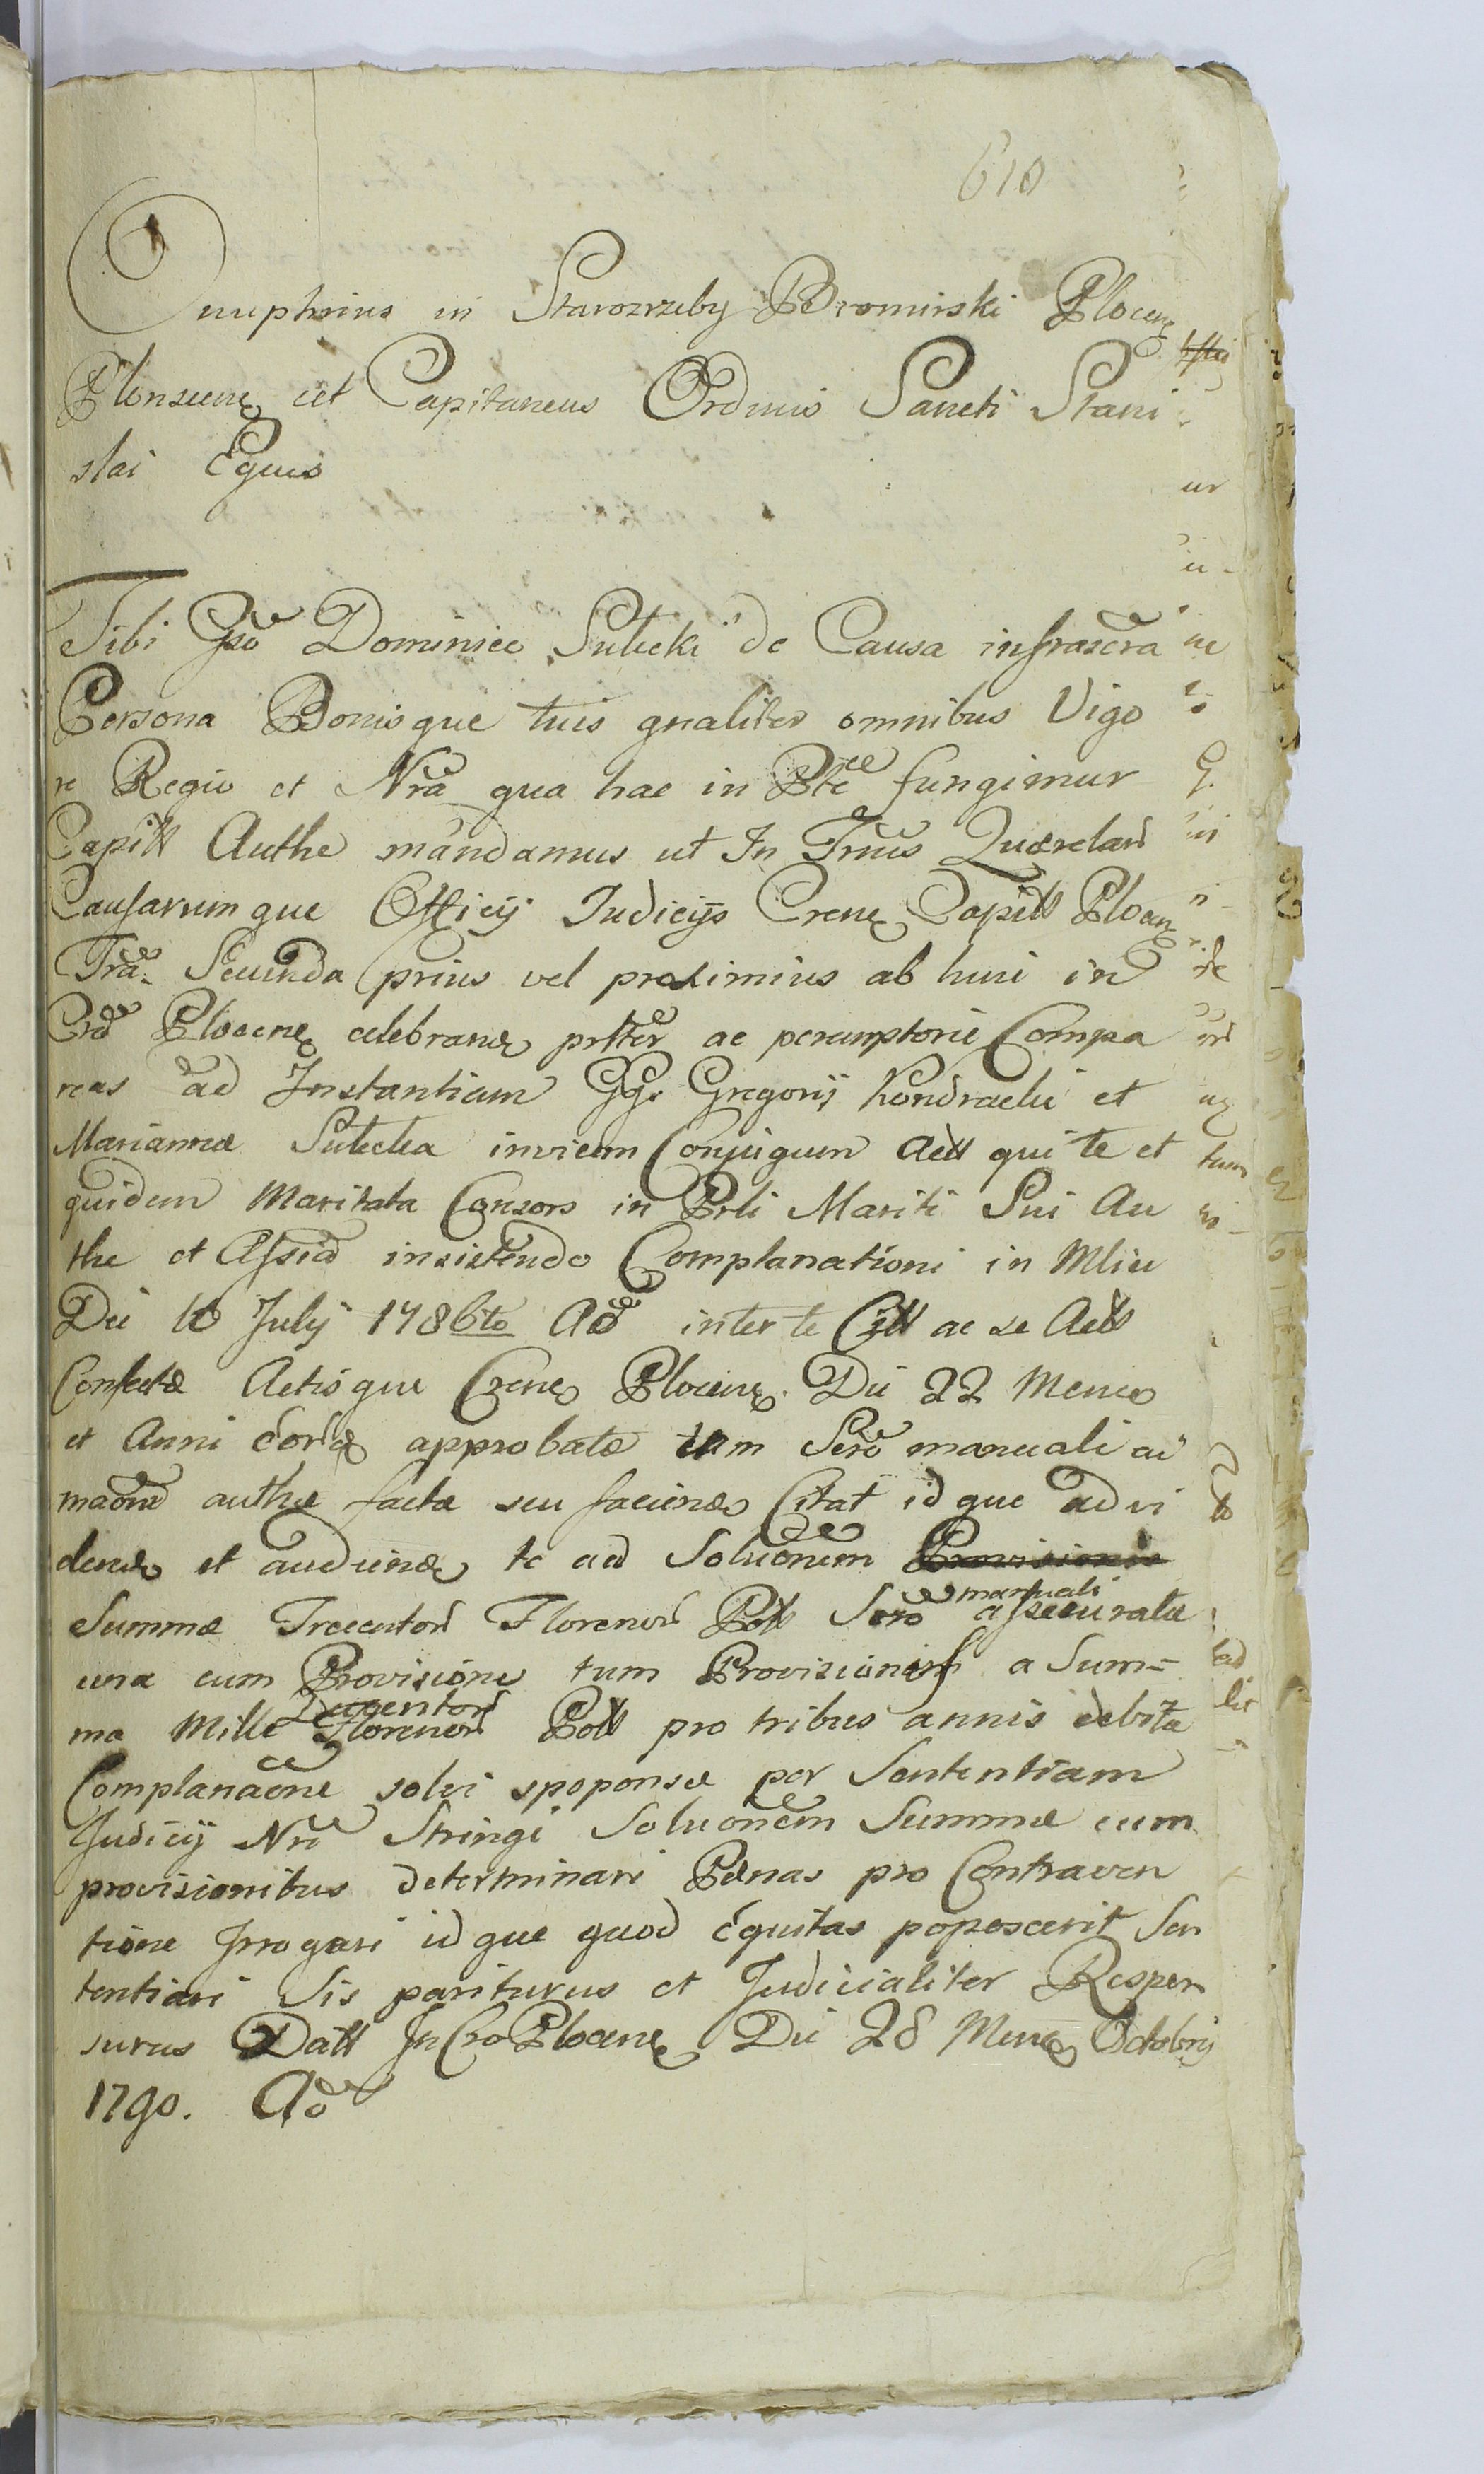 610
Onuphrius in Starozreby Bromirski Plocen
Plonscen et Capitaneus Ordinis Sancti Stani
slai Eques
Tibi Gso Dominico Sulicki de Causa infrascra
Persona Bonisque tuis gnaliter omnibus Vigo
re Regio et Nra qua hac in Pte fungimur
Capitt Authe mandamus ut In Trnis Querelar
Causarumque Officij Judicijs Crens Capitt Plocen
Tra Secunda prius vel proximius ab huic in
Cro Plocens celebrans pntter ac peremptorie Compa
reas ad Instantiam GGr Gregorij Kondracki et
Marianna Sulicka invicem Conjugum Actt qui te et
quidem Maritata Consors in Prli Mariti Sui Au
the et Assia insistendo Complanationi in Mliu
Die 10 July 1786to Ao inter te Citt ac se Actt
Confecta Actisque Crens Plocens Die 22 Mensis
et Anni eor approbata tum Scro manuali ad
maone autha facta seu faciend Citat idque ad vi
dend et audiend te ad Soluonem Provisionis
Summa Trecentor Florenor Poll Scro manuali assecurata
una cum Provisione tum Provisionis a Sum=
ma Mille Ducentor Florenor Poll pro tribus annis debita
Complanaone solvi sponsa per Sententiam
Judicij Nri Stringi Soluonem Summa cum
provisionibus determinari Panas pro Contraven
tione Irrogari idque quod Equitas poposcerit Sen
tentiari Sis pariturus et Judicialiter Respon
surus Datt In Cro Plocens Die 28 Mens Octobrij
1790. Ao